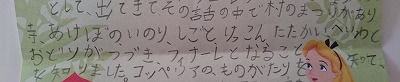 として、出てきてその話の中で村のまつりがあり
寺、あけぼのいのり、しごと、けっこん、たたかい、へいわと
おどりがつづき、フィナーレとなること
を知りました。コッペリアのものがたりを